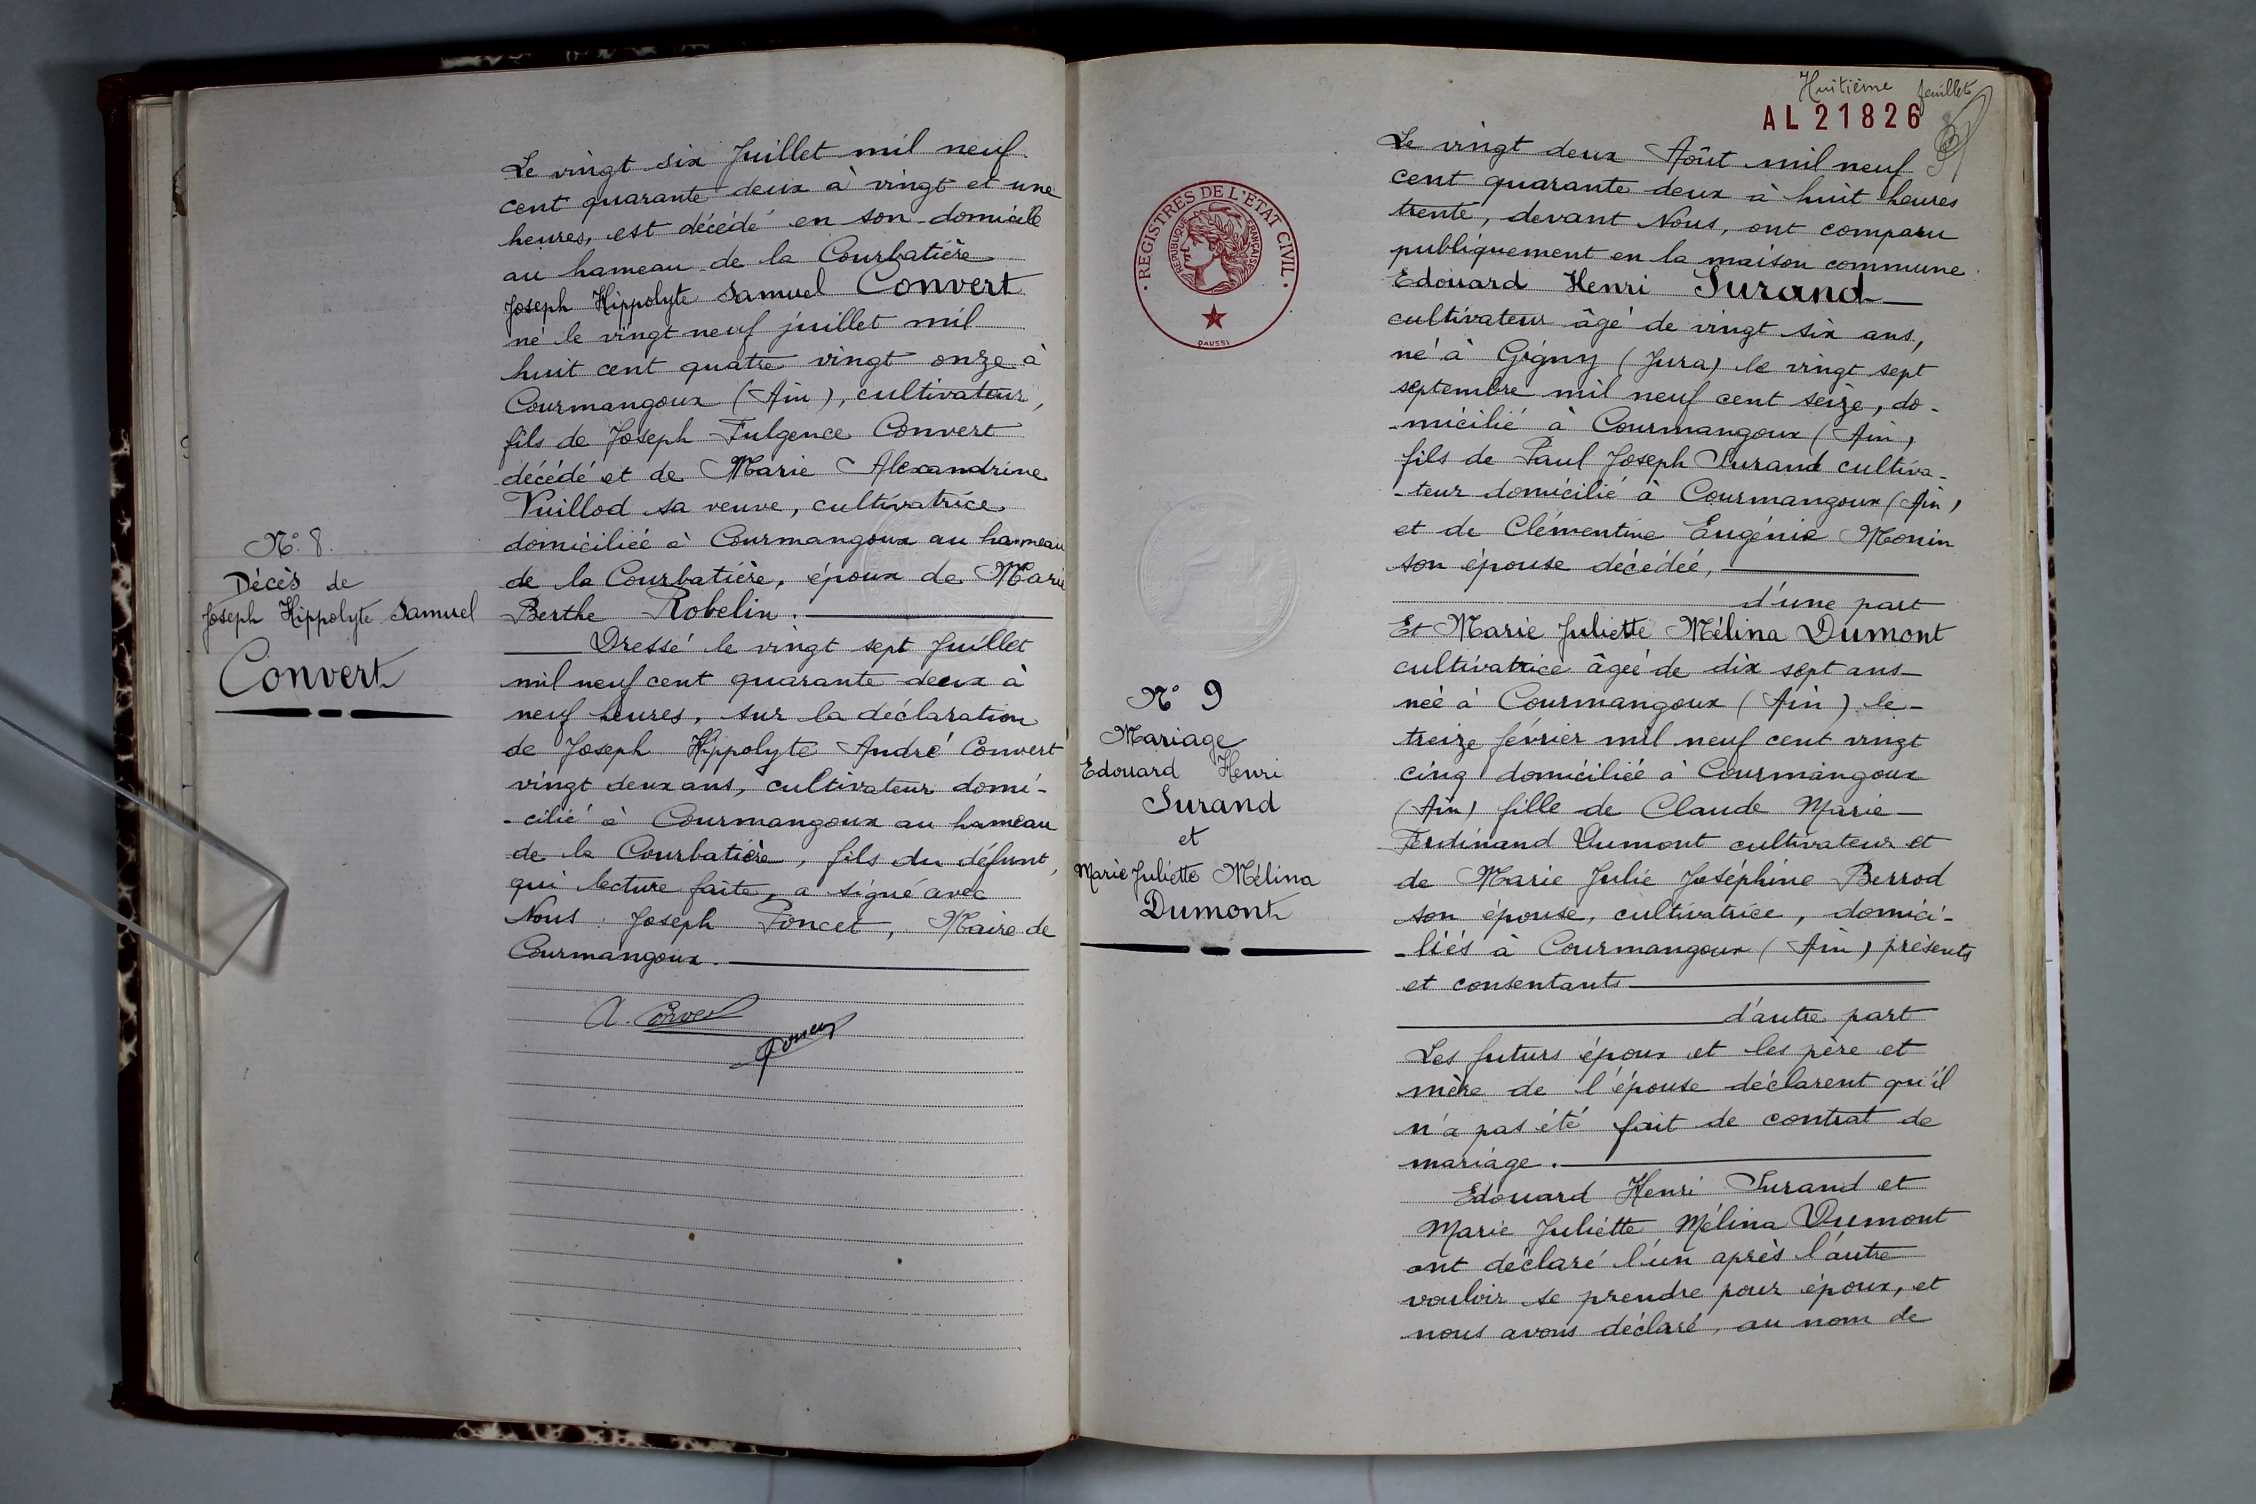 N° 8.
Décès de
Joseph Hippolyte Samuel
Convert
Le vingt six Juillet mil neuf
cent quarante deux à vingt et une
heures, est décédé en son domicile
au hameau de la Courbatière
Joseph Hippolyte Samuel Convert
né le vingt neuf juillet mil
huit cent quatre vingt onze à
Courmangoux (Ain), cultivateur,
fils de Joseph Fulgence Convert
décédé et de Marie Alexandrine
Vuillod sa veuve, cultivatrice
domiciliée à Courmangoux au hameau
de la Courbatière, époux de Marie
Berthe Robelin.
Dressé le vingt sept Juillet
mil neuf cent quarante deux à
neuf heures, sur la déclaration
de Joseph Hippolyte André Convert
vingt deux ans, cultivateur domi-
-cilié à Courmangoux au hameau
de la Courbatière, fils du défunt,
qui lecture faite, a signé avec
Nous Joseph Poncet, Maire de
Courmangoux.
A. Convert
Poncet
Huitième feuillet
AL 21826
REGISTRES DE L'ETAT CIVIL
REPUBLIQUE FRANÇAISE
DAUSSI
N° 9
Mariage
Edouard Henri
Surand
et
Marie Juliette Mélina
Dumont
Le vingt deux Août mil neuf
cent quarante deux à huit heures
trente, devant Nous, ont comparu
publiquement en la maison commune
Edouard Henri Surand
cultivateur âgé de vingt six ans,
né à Gigny (Jura) le vingt sept
septembre mil neuf cent seize, do-
-micilié à Courmangoux (Ain)
fils de Paul Joseph Surand cultiva-
-teur domicilié à Courmangoux (Ain)
et de Clémentine Eugénie Monin
son épouse décédée,
d'une part
Et Marie Juliette Mélina Dumont
cultivatrice âgée de dix sept ans
née à Courmangoux (Ain) le
treize février mil neuf cent vingt
cinq domiciliée à Courmangoux
(Ain) fille de Claude Marie
Ferdinand Dumont cultivateur et
de Marie Julie Joséphine Berrod
son épouse, cultivatrice, domici-
-liés à Courmangoux (Ain) présents
et consentants
d'autre part
Les futurs époux et les père et
mère de l'épouse déclarent qu'il
n'a pas été fait de contrat de
mariage.
Edouard Henri Surand et
Marie Juliette Mélina Dumont
ont déclaré l'un après l'autre
vouloir se prendre pour époux, et
nous avons déclaré, au nom de